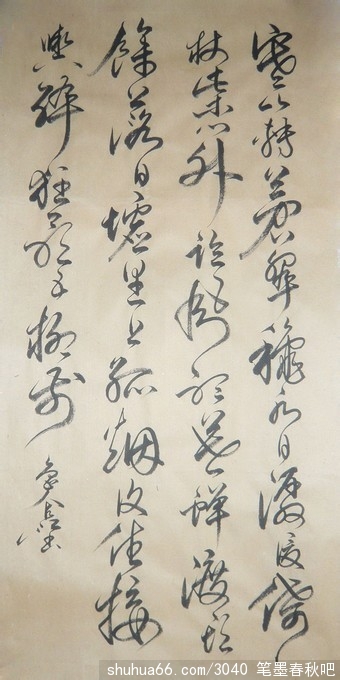 寒山轉蒼翠秋水日潺湲倚
杖柴門外臨風聽暮蟬渡頭
餘落日墟里上孤烟復值接
輿醉狂歌五柳前
shuhua66.com/3040 笔墨春秋吧